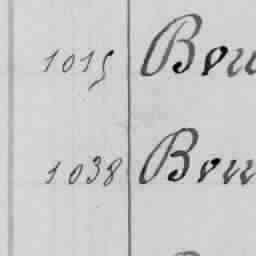 1015 Bou
1038 Bou